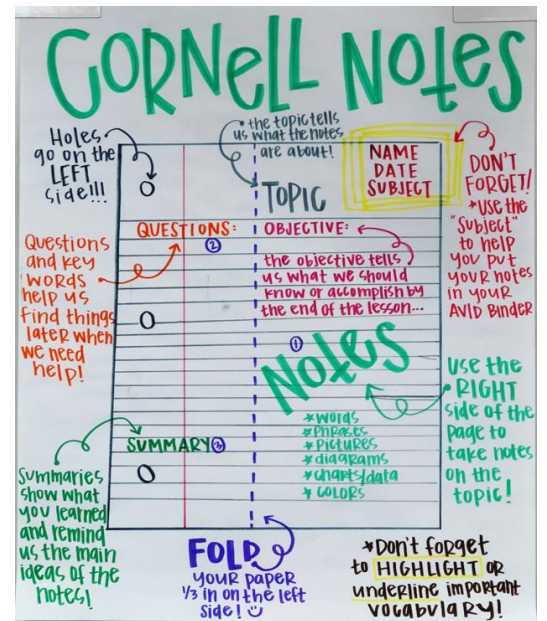 CORNELL NOTES
Holes
go on the
LEFT
side!!!
the topic tells
us what the notes
are about!
NAME
DATE
SUBJECT
TOPIC
DON'T
FORGET!
*USE the
"Subject"
to help
you put
your notes
in your
AVID Binder
QUESTIONS:
2
OBJECTIVE:
the objective tells
us what we should
know or accomplish by
the end of the lesson...
Questions
and key
words
help us
find things
later when
we need
help!
1
Notes
*words
*phrases
*pictures
*diagrams
*charts/data
*colors
use the
RIGHT
side of the
page to
take notes
on the
topic!
SUMMARY 3
Summaries
show what
you learned
and remind
us the main
ideas of the
notes!
FOLD
your paper
1/3 in on the left
side!
*Don't forget
to HIGHLIGHT OR
underline important
vocabulary!